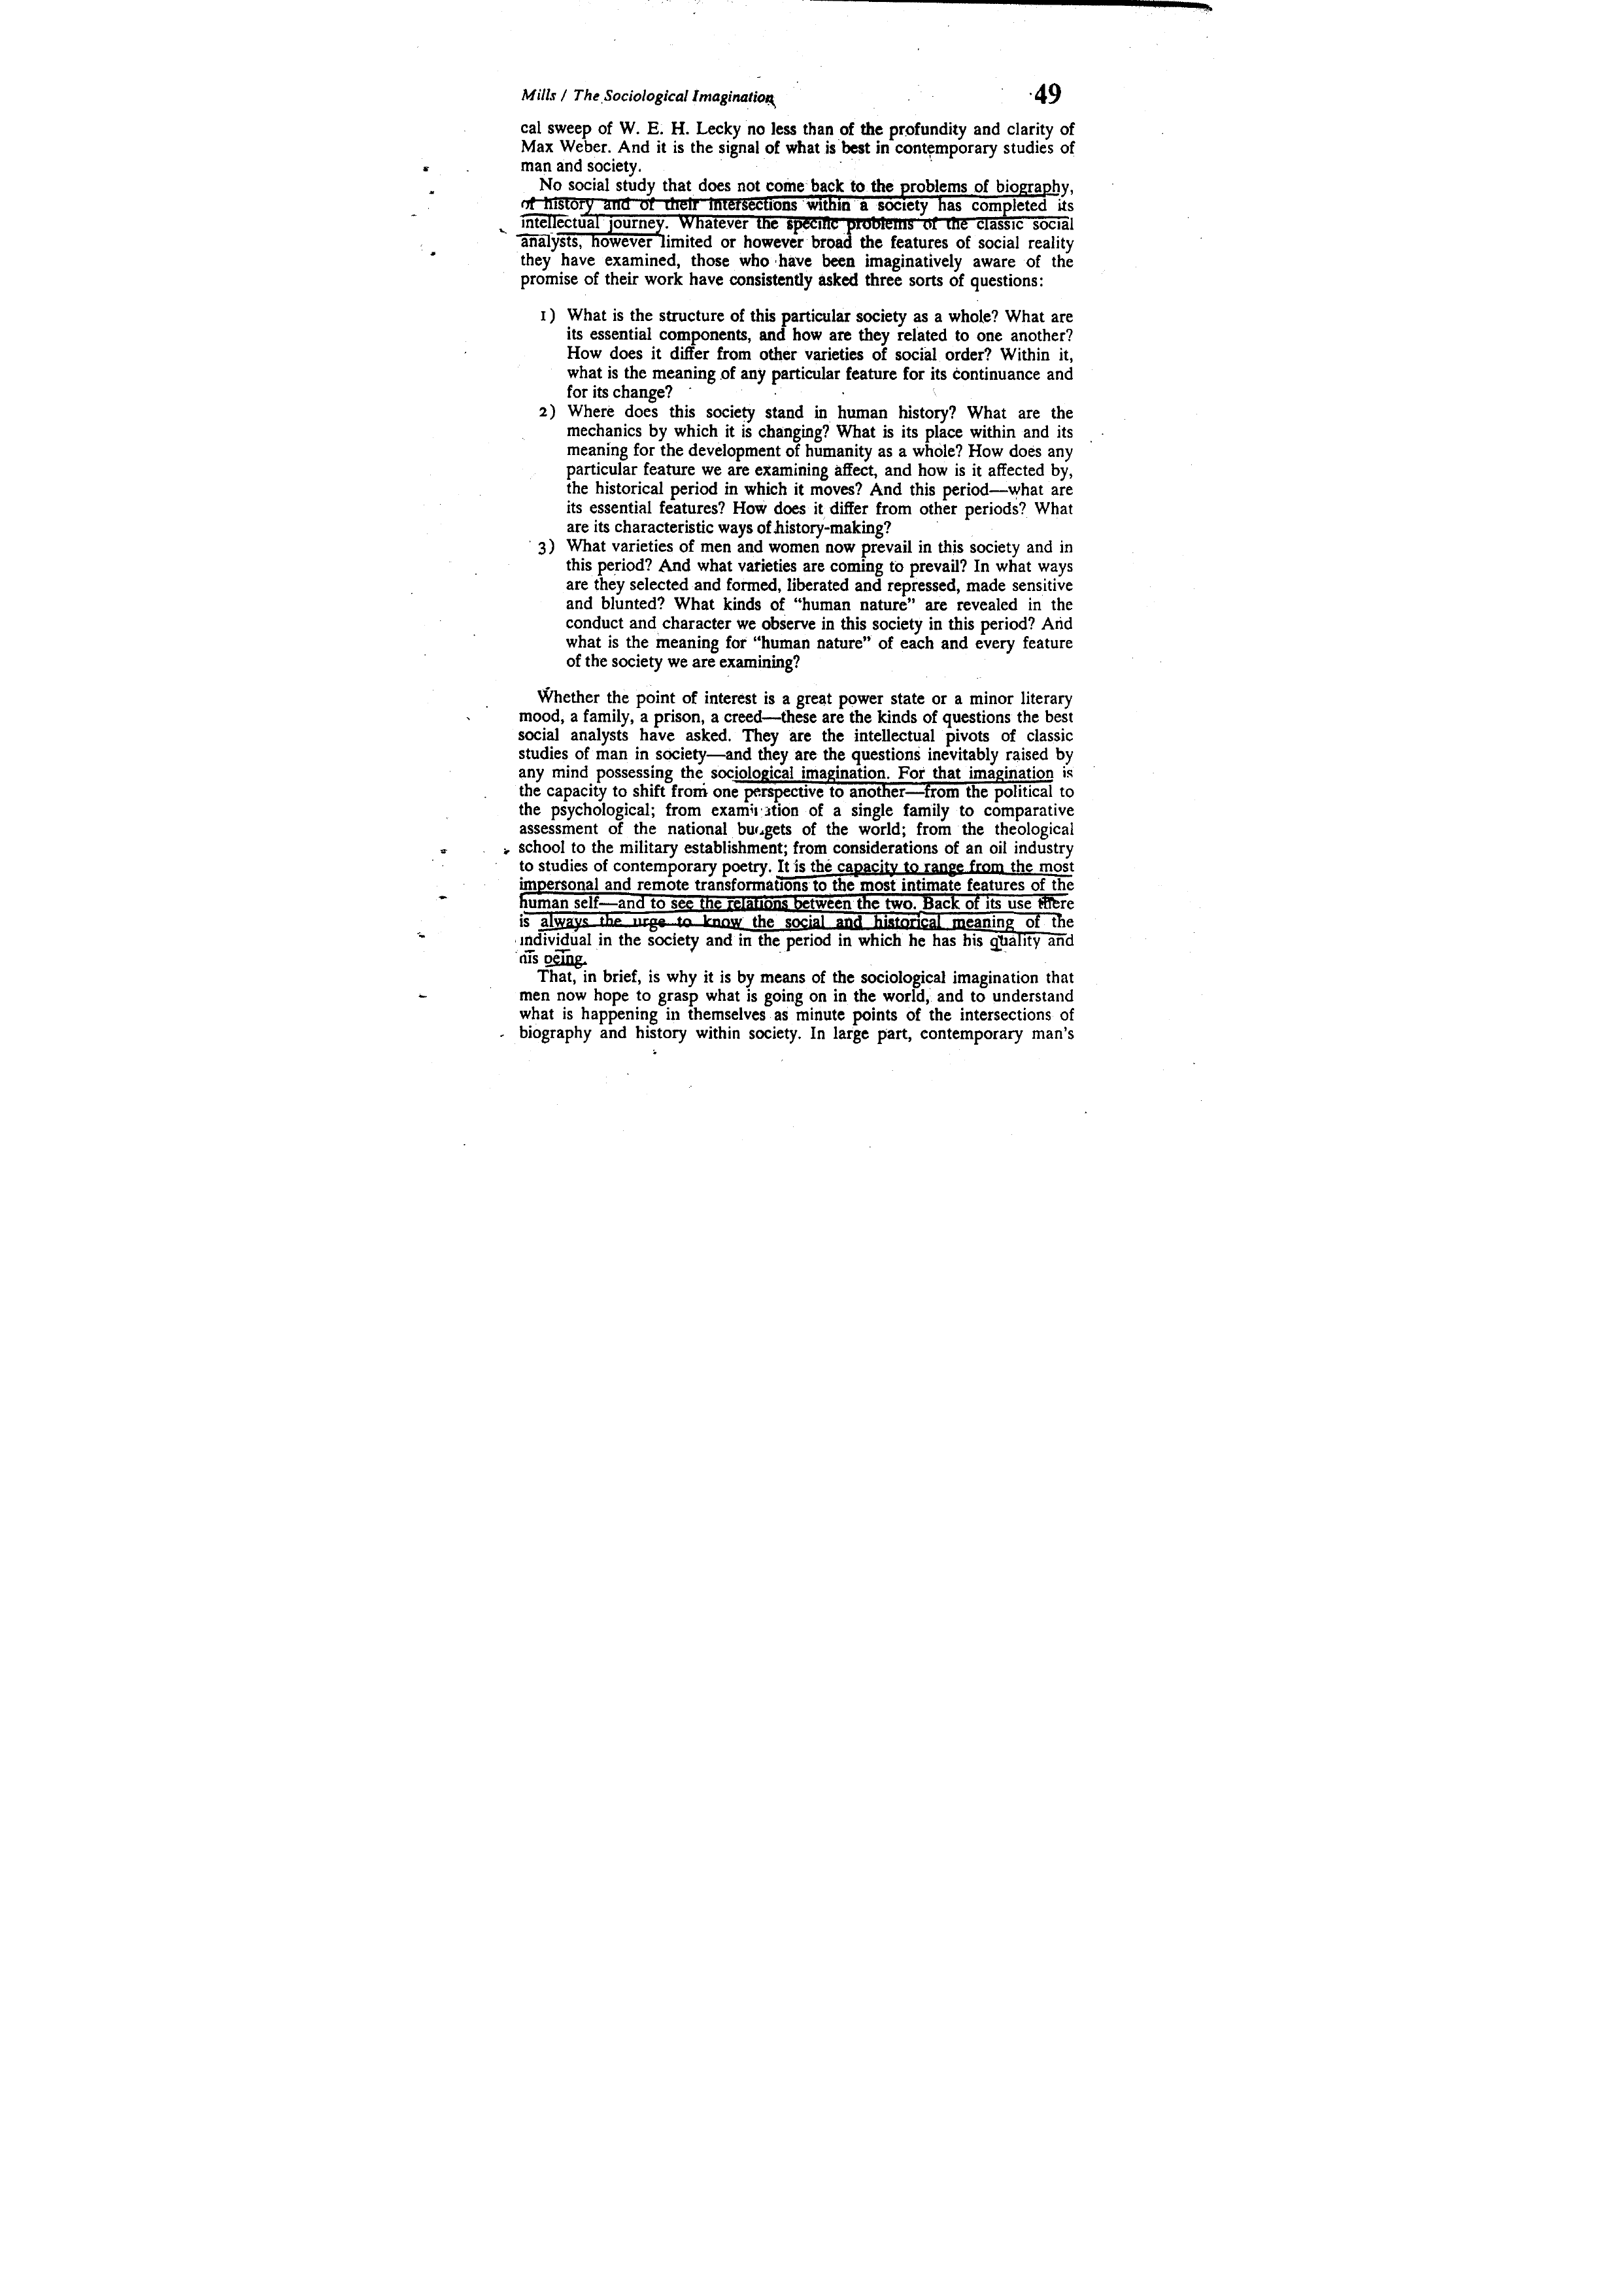 Mills / The Sociological Imagination
49
cal sweep of W. E. H. Lecky no less than of the profundity and clarity of
Max Weber. And it is the signal of what is best in contemporary studies of
man and society.
No social study that does not come back to the problems of biography,
of history and of their intersections within a society has completed its
intellectual journey. Whatever the specific problems of the classic social
analysts, however limited or however broad the features of social reality
they have examined, those who have been imaginatively aware of the
promise of their work have consistently asked three sorts of questions:
1) What is the structure of this particular society as a whole? What are
its essential components, and how are they related to one another?
How does it differ from other varieties of social order? Within it,
what is the meaning of any particular feature for its continuance and
for its change?
2) Where does this society stand in human history? What are the
mechanics by which it is changing? What is its place within and its
meaning for the development of humanity as a whole? How does any
particular feature we are examining affect, and how is it affected by,
the historical period in which it moves? And this period—what are
its essential features? How does it differ from other periods? What
are its characteristic ways of history-making?
3) What varieties of men and women now prevail in this society and in
this period? And what varieties are coming to prevail? In what ways
are they selected and formed, liberated and repressed, made sensitive
and blunted? What kinds of “human nature” are revealed in the
conduct and character we observe in this society in this period? And
what is the meaning for “human nature” of each and every feature
of the society we are examining?
Whether the point of interest is a great power state or a minor literary
mood, a family, a prison, a creed—these are the kinds of questions the best
social analysts have asked. They are the intellectual pivots of classic
studies of man in society—and they are the questions inevitably raised by
any mind possessing the sociological imagination. For that imagination is
the capacity to shift from one perspective to another—from the political to
the psychological; from examination of a single family to comparative
assessment of the national budgets of the world; from the theological
school to the military establishment; from considerations of an oil industry
to studies of contemporary poetry. It is the capacity to range from the most
impersonal and remote transformations to the most intimate features of the
human self—and to see the relations between the two. Back of its use there
is always the urge to know the social and historical meaning of the
individual in the society and in the period in which he has his quality and
his being.
That, in brief, is why it is by means of the sociological imagination that
men now hope to grasp what is going on in the world, and to understand
what is happening in themselves as minute points of the intersections of
biography and history within society. In large part, contemporary man’s